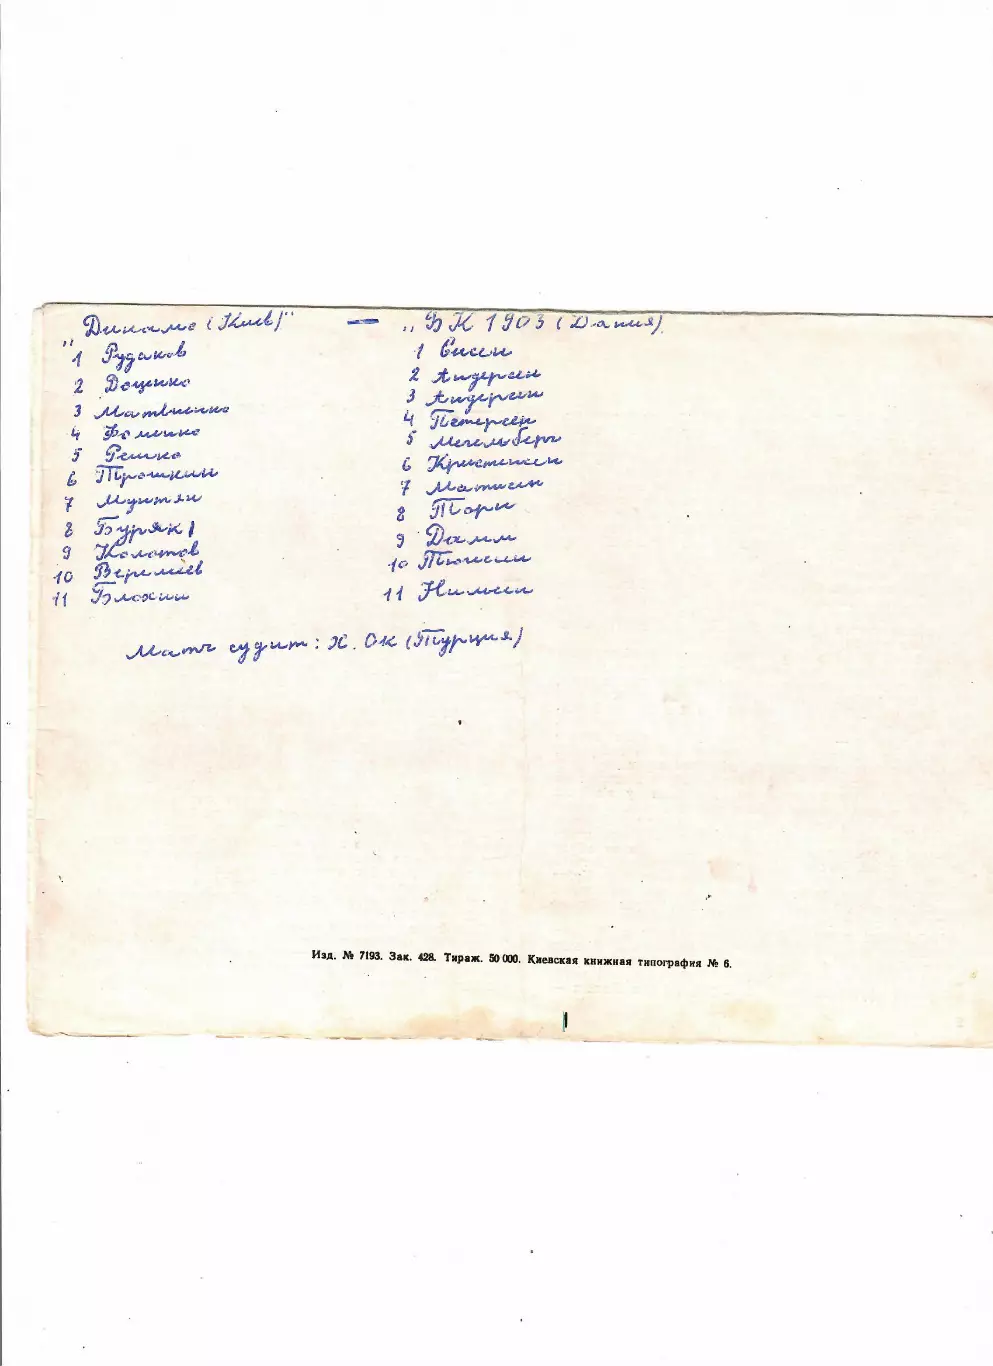 „Динамо (Киев)" — „БК 1903 (Дания)
1 Рудаков 1 Енсен
2 Доценко 2 Андерсен
3 Матвиенко 3 Андерсен
4 Фоменко 4 Петерсен
5 Решко 5
6 Трошкин 6 Кристенсен
7 Мунтян 7 Матисен
8 Буряк 8 Тори
9 Колотов 9 Дамм
10 Веремеев 10
11 Блохин 11
Матч судит: Х. Ок (Турция)
Изд. № 7193. Зак. 428. Тираж. 50 000. Киевская книжная типография № 6.